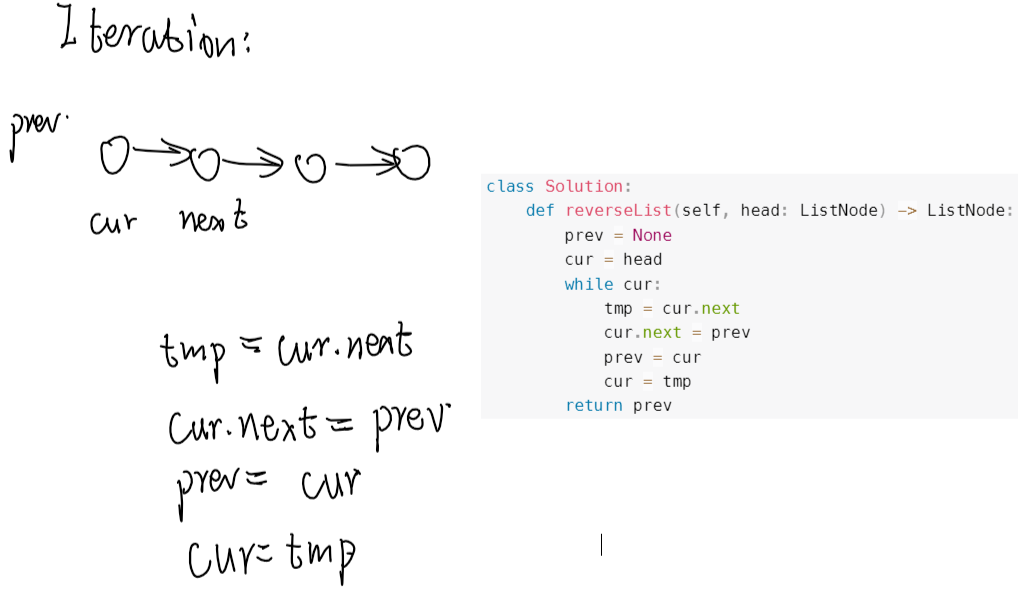 Iteration:
prev.
cur next
tmp = cur.next
cur.next = prev
prev = cur
cur = tmp
class Solution:
    def reverseList(self, head: ListNode) -> ListNode:
        prev = None
        cur = head
        while cur:
            tmp = cur.next
            cur.next = prev
            prev = cur
            cur = tmp
        return prev